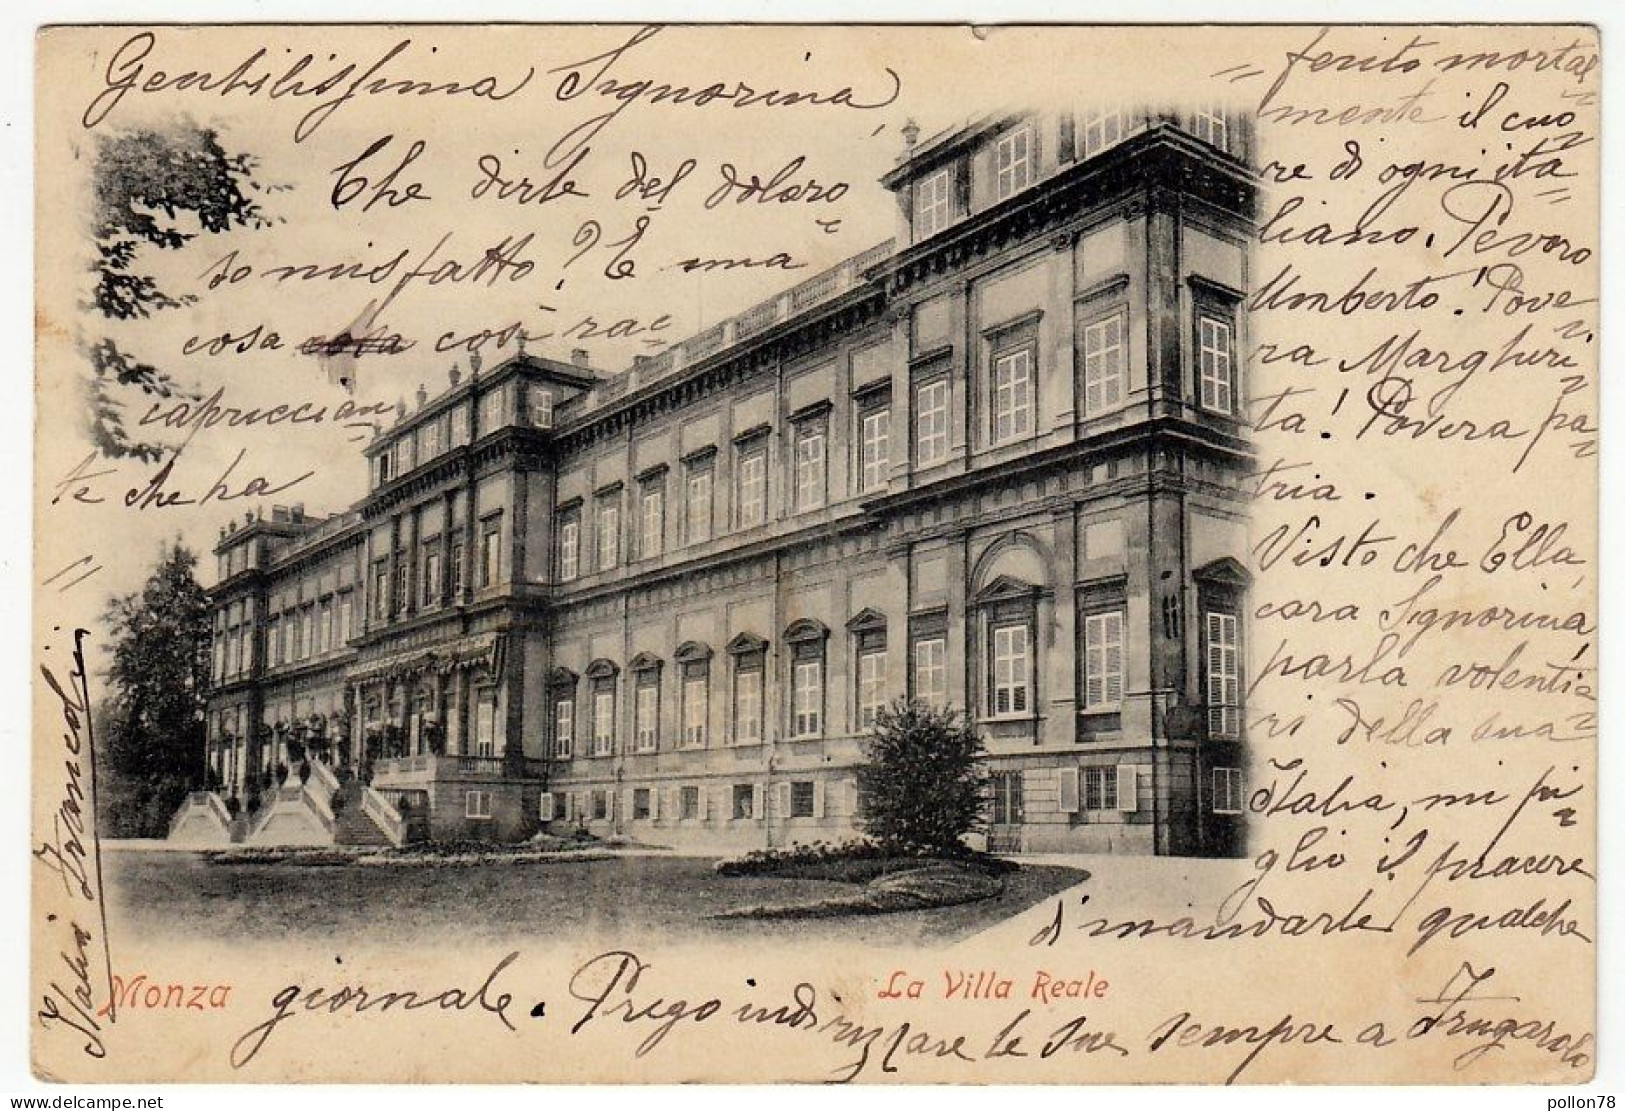 Gentilissima Signorina,
Che dirle del doloro=
so misfatto? È una
cosa così rac=
capriccian=
te che ha
=
= ferito mortal=
mente il cuo=
re di ogni ita=
liano. Povero
Umberto! Pove=
ra Margheri=
ta! Povera pa=
tria.
Visto che Ella,
cara Signorina,
parla volentie=
ri della sua
Italia, mi pi=
glio il piacere
di mandarle qualche
giornale. Prego indirizzare le sue sempre a Frugarolo
Italia
Monza
La Villa Reale
pollon78